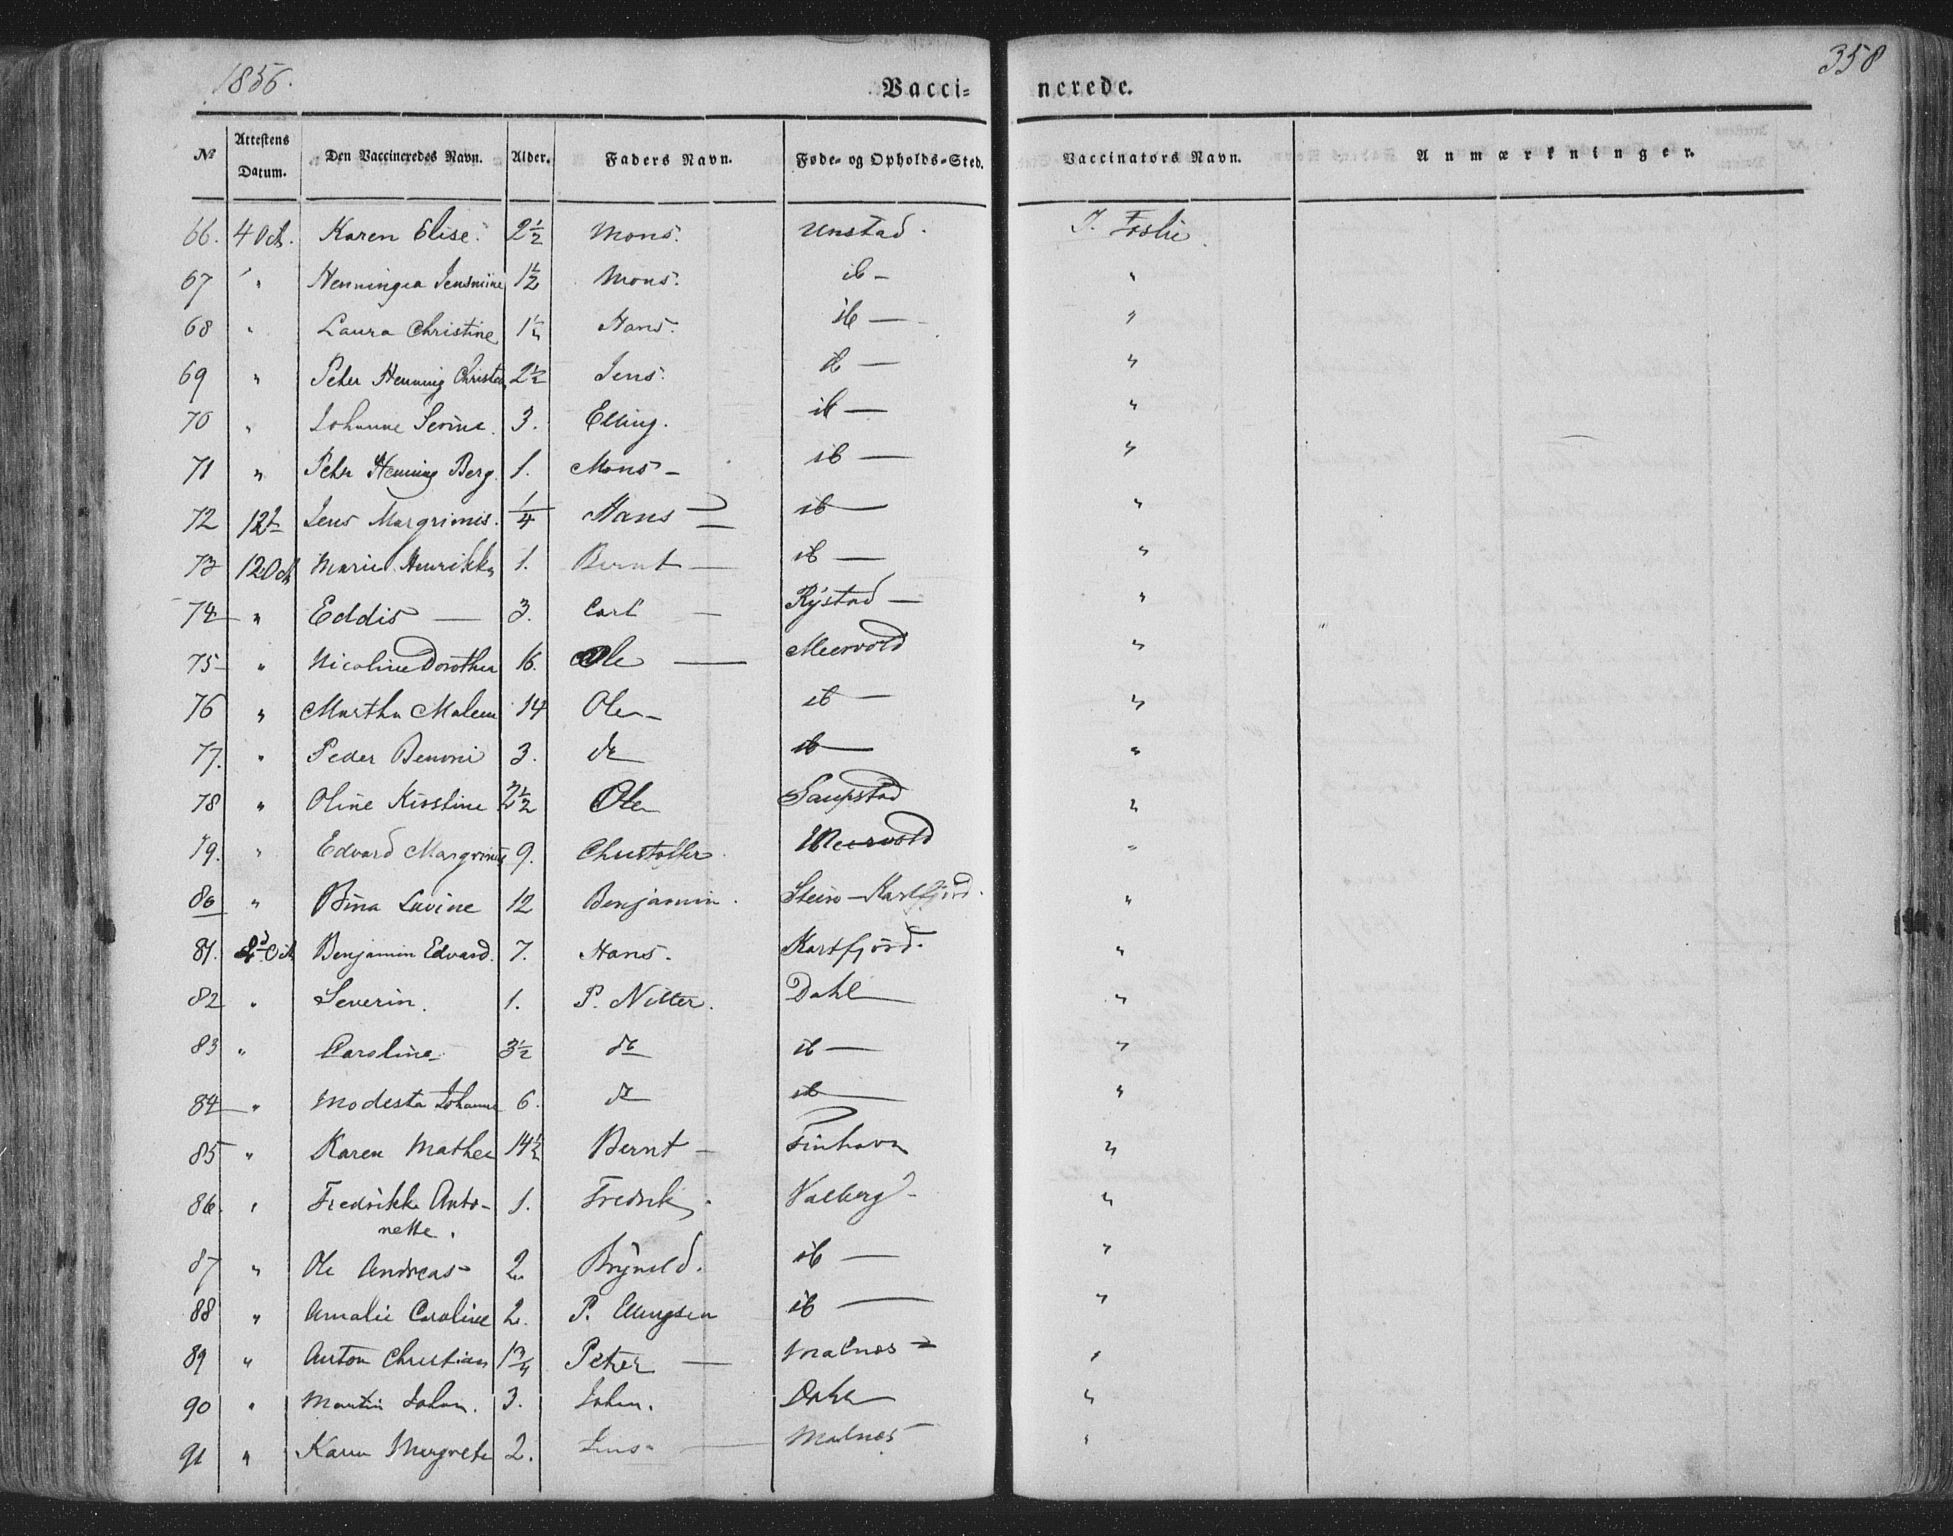 1856.
358
Vacci- nerede.
No Attestens Datum. Den Vaccineredes Navn. Alder. Faders Navn. Føde- og Opholds-Sted. Vaccinators Navn. Anmærkninger.
66. 4 Oct. Karen Elise. 2½ Mons. Unstad. J. Foslie.
67 " " Henningea Jensmine 1½ Mons. ib — "
68 " Laura Christine 1½ Hans. ib — "
69 " Peter Henning Christen 2½ Jens. ib — "
70 " Johanne Serine. 3. Elling. ib — "
71 " Peter Henning Berg. 1. Mons — ib — "
72 12t Jens Margrinus. ¼ Hans — ib — "
73 12 Oct Marie Henrikka 1. Bernt — ib — "
74 — " Eddis — 3. Carl — Rystad — "
75 — " Nicoline Dorothea 16. Ole — Meervold "
76 " Martha Malena 14 Ole — ib — "
77. " Peder Benoni 3. do ib — "
78 " Oline Kirstine 2½ Ole Saupstad "
79. " Edvard Margrinus 9. Christoffer. Meervold "
80 " Bina Lavine 12 Benjamin. Steiro — Kartfjord. "
81. Oct Benjamin Edvard. 7. Hans. Kartfjord. "
82 " Severin. 1. P. Nitter. Dahl — "
83 " Caroline. 3½ do ib — "
84 — " Modesta Johanna 6. do ib — "
85 " Karen Mathea 14½ Bernt — Finhavn "
86. " Fredrikke Anto- 1. Fredrik. Valberg — "
nette.
87 " Ole Andreas — 2. Brynild. ib — "
88 " Amalie Caroline 2. P. Ellingsen ib — "
89 " Anton Christian 1¾ Peter — Malnes — "
90 " Martin Johan. 3. Johan. Dahl "
91 " Karen Margrete 2. Jens — Malnes "